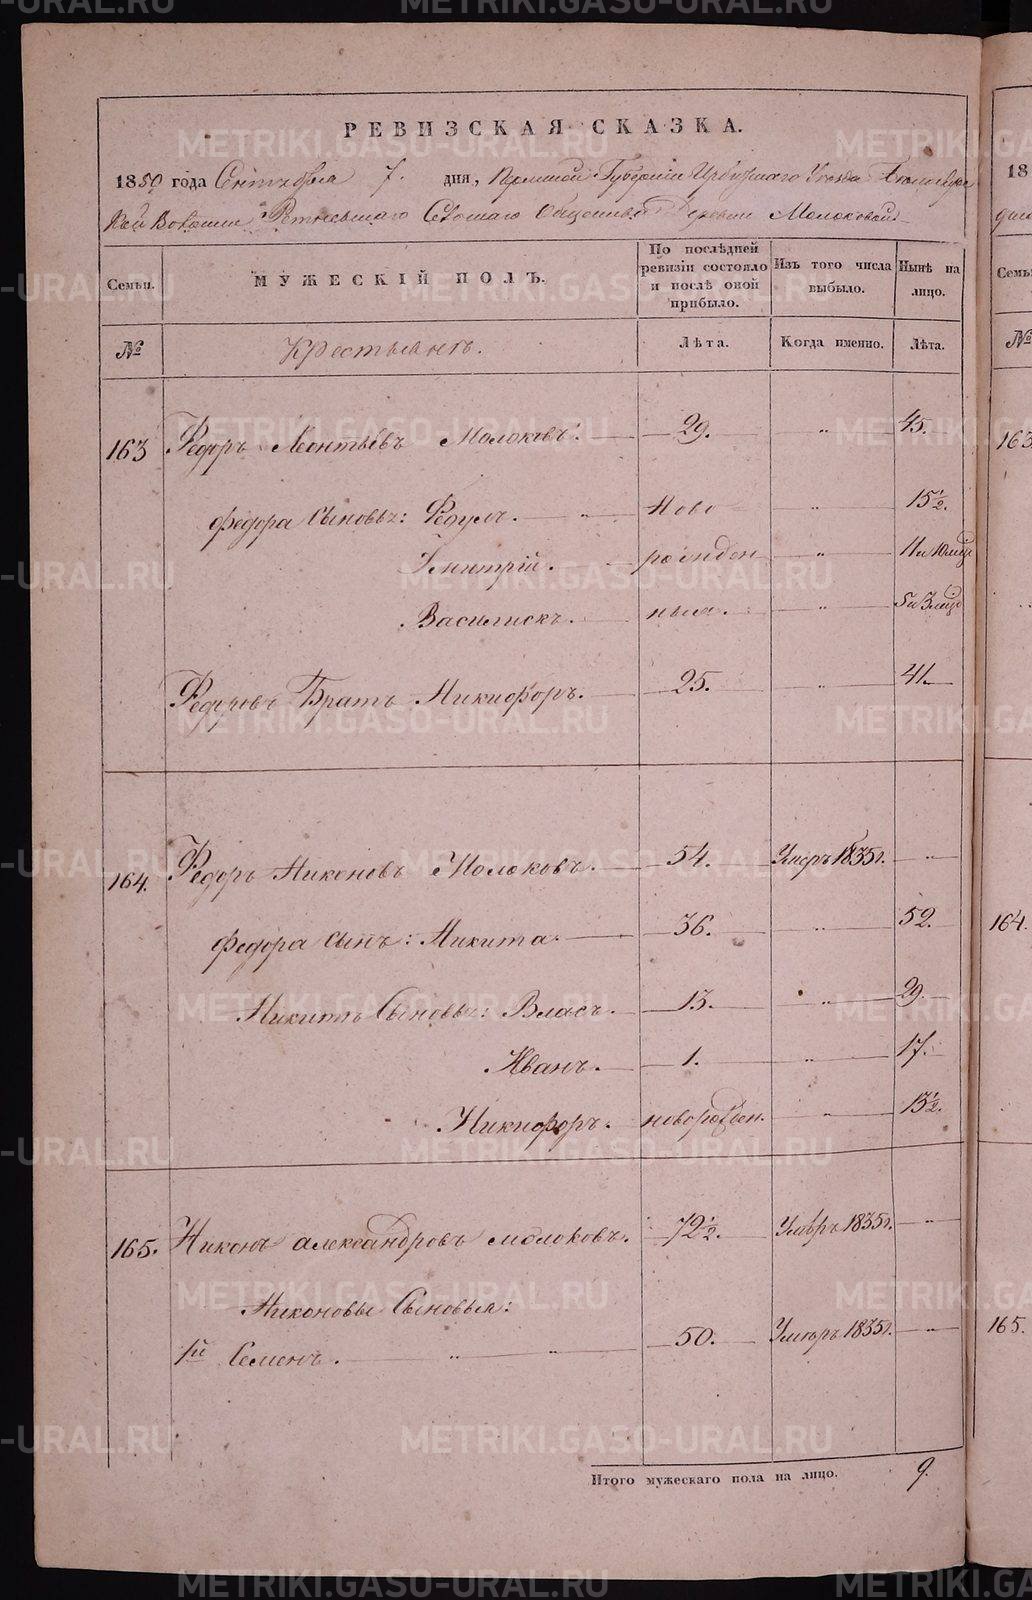 РЕВИЗСКАЯ СКАЗКА.
1850 года Сентября 7. дня, Пермской Губернiи Ирбитскаго Уезда
Волости Сельскаго Общества Деревни Молоковой
Семьи.
МУЖЕСКIЙ ПОЛЪ.
По послѣдней ревизiи состояло и послѣ оной прибыло.
Изъ того числа выбыло.
Нынѣ на лицо.
№ Крестьянъ. Лѣта. Когда именно. Лѣта.
163 Федоръ Леонтьевъ Молоковъ. 29. „ 45.
Федора Сыновья: Федулъ. „ Ново „ 15½.
Дмитрiй. рожден „ 11 и 10 мцъ
Василискъ. ныя. „ 5 и 3 мцъ
Федоровъ Братъ Никифоръ. 25. „ 41.
164. Федоръ Никоновъ Молоковъ. 54. Умеръ 1835 г. „
Федора сынъ: Никита. 36. „ 52.
Никиты Сыновья: Власъ. 13. „ 29.
Иванъ. 1. „ 17.
Никифоръ. новорожден. „ 13½.
165. Никонъ Александровъ Молоковъ. 72½. Умеръ 1835 г. „
Никоновы Сыновья:
1й Семенъ. „ „ 50. Умеръ 1835 г. „
Итого мужескаго пола на лицо. 9.
18
Семьи
№
163
164.
165.
METRIKI.GASO-URAL.RU